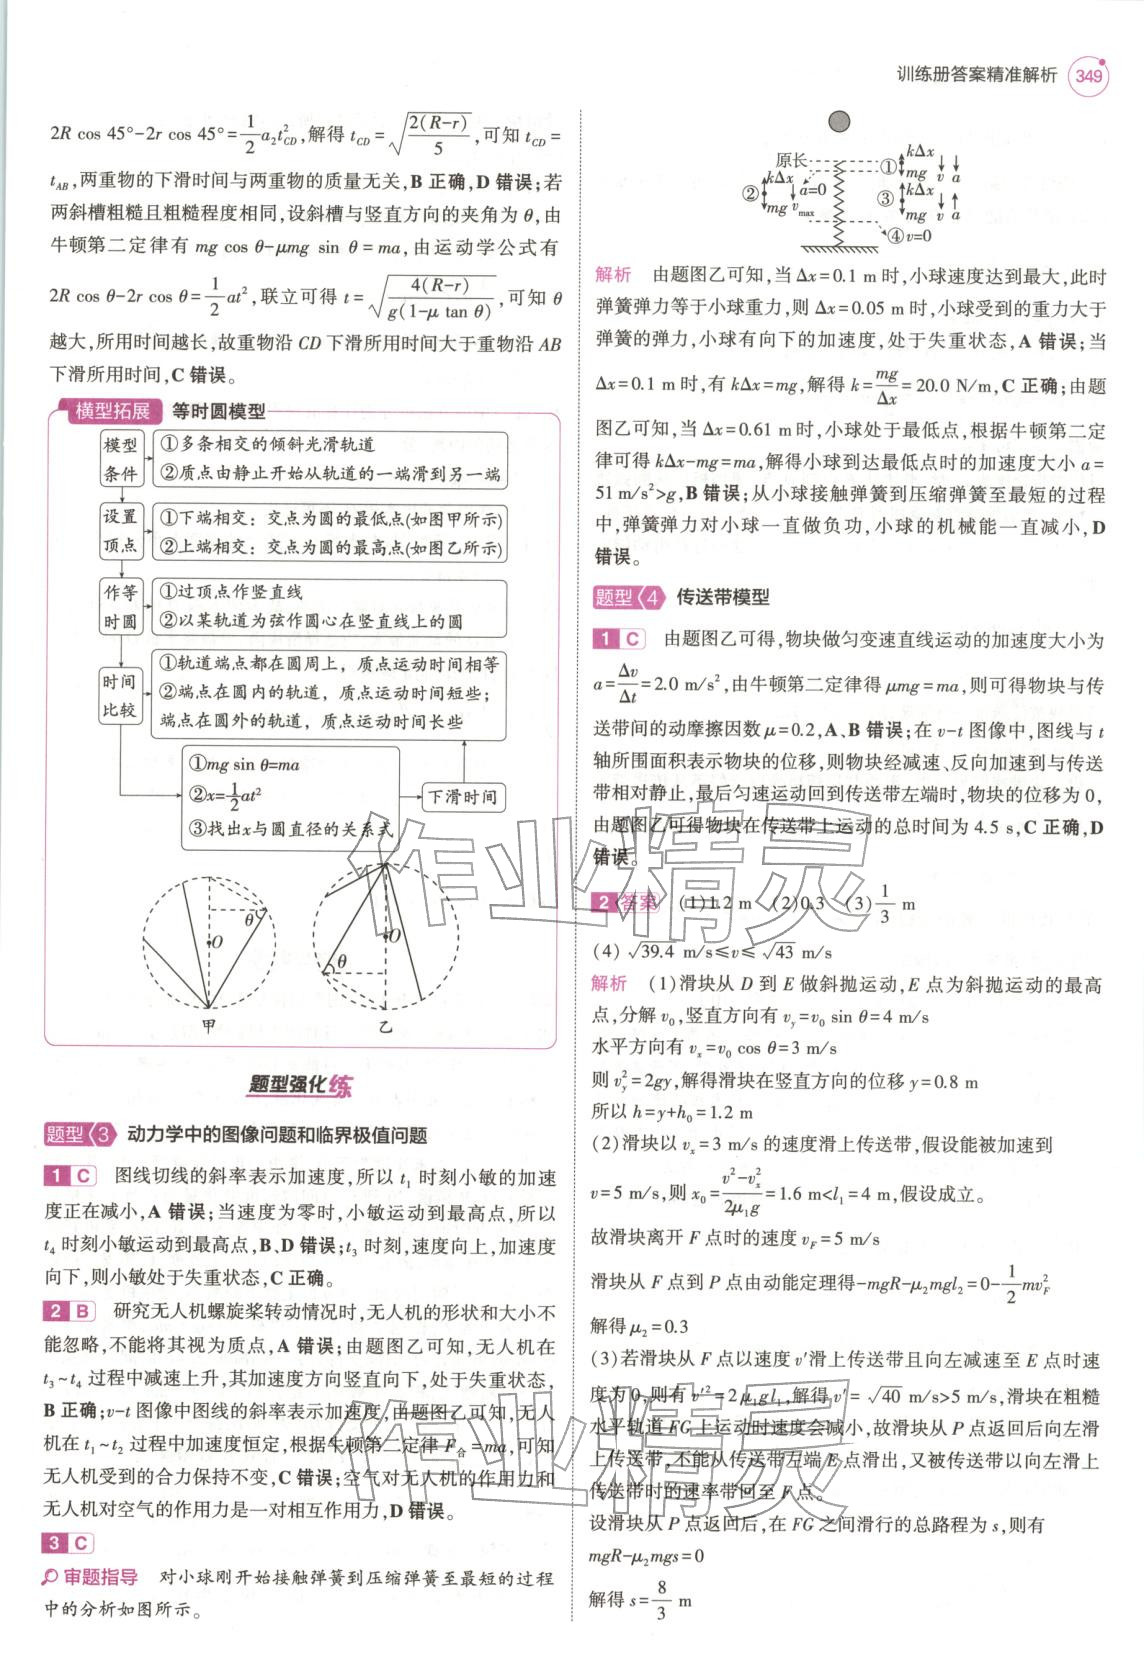 训练册答案精准解析 349
2R cos 45°-2r cos 45°=1/2 a₂t²_CD,解得 t_CD=√(2(R-r)/5),可知 t_CD=
t_AB,两重物的下滑时间与两重物的质量无关,B 正确,D 错误;若
两斜槽粗糙且粗糙程度相同,设斜槽与竖直方向的夹角为 θ,由
牛顿第二定律有 mg cos θ-μmg sin θ=ma,由运动学公式有
2R cos θ-2r cos θ=1/2 at²,联立可得 t=√(4(R-r)/g(1-μ tan θ)),可知 θ
越大,所用时间越长,故重物沿 CD 下滑所用时间大于重物沿 AB
下滑所用时间,C 错误。
模型拓展 等时圆模型
模型条件
①多条相交的倾斜光滑轨道
②质点由静止开始从轨道的一端滑到另一端
设置顶点
①下端相交：交点为圆的最低点(如图甲所示)
②上端相交：交点为圆的最高点(如图乙所示)
作等时圆
①过顶点作竖直线
②以某轨道为弦作圆心在竖直线上的圆
时间比较
①轨道端点都在圆周上，质点运动时间相等
②端点在圆内的轨道，质点运动时间短些；
端点在圆外的轨道，质点运动时间长些
①mg sin θ=ma
②x=1/2 at²
③找出x与圆直径的关系式
下滑时间
θ O 甲
O θ 乙
题型强化练
题型 3 动力学中的图像问题和临界极值问题
1 C 图线切线的斜率表示加速度,所以 t₁ 时刻小敏的加速
度正在减小,A 错误;当速度为零时,小敏运动到最高点,所以
t₄ 时刻小敏运动到最高点,B、D 错误;t₃ 时刻,速度向上,加速度
向下,则小敏处于失重状态,C 正确。
2 B 研究无人机螺旋桨转动情况时,无人机的形状和大小不
能忽略,不能将其视为质点,A 错误;由题图乙可知,无人机在
t₃~t₄ 过程中减速上升,其加速度方向竖直向下,处于失重状态,
B 正确;v-t 图像中图线的斜率表示加速度,由题图乙可知,无人
机在 t₁~t₂ 过程中加速度恒定,根据牛顿第二定律 F合=ma,可知
无人机受到的合力保持不变,C 错误;空气对无人机的作用力和
无人机对空气的作用力是一对相互作用力,D 错误。
3 C
审题指导 对小球刚开始接触弹簧到压缩弹簧至最短的过程
中的分析如图所示。
原长 ① kΔx mg v a
② kΔx a=0 mg v_max
③ kΔx mg v a
④v=0
解析 由题图乙可知,当 Δx=0.1 m 时,小球速度达到最大,此时
弹簧弹力等于小球重力,则 Δx=0.05 m 时,小球受到的重力大于
弹簧的弹力,小球有向下的加速度,处于失重状态,A 错误;当
Δx=0.1 m 时,有 kΔx=mg,解得 k=mg/Δx=20.0 N/m,C 正确;由题
图乙可知,当 Δx=0.61 m 时,小球处于最低点,根据牛顿第二定
律可得 kΔx-mg=ma,解得小球到达最低点时的加速度大小 a=
51 m/s²>g,B 错误;从小球接触弹簧到压缩弹簧至最短的过程
中,弹簧弹力对小球一直做负功,小球的机械能一直减小,D
错误。
题型 4 传送带模型
1 C 由题图乙可得,物块做匀变速直线运动的加速度大小为
a=Δv/Δt=2.0 m/s²,由牛顿第二定律得 μmg=ma,则可得物块与传
送带间的动摩擦因数 μ=0.2,A、B 错误;在 v-t 图像中,图线与 t
轴所围面积表示物块的位移,则物块经减速、反向加速到与传送
带相对静止,最后匀速运动回到传送带左端时,物块的位移为 0,
由题图乙可得物块在传送带上运动的总时间为 4.5 s,C 正确,D
错误。
2 答案 (1)1.2 m (2)0.3 (3)1/3 m
(4)√39.4 m/s≤v≤√43 m/s
解析 (1)滑块从 D 到 E 做斜抛运动,E 点为斜抛运动的最高
点,分解 v₀,竖直方向有 v_y=v₀ sin θ=4 m/s
水平方向有 v_x=v₀ cos θ=3 m/s
则 v_y²=2gy,解得滑块在竖直方向的位移 y=0.8 m
所以 h=y+h₀=1.2 m
(2)滑块以 v_x=3 m/s 的速度滑上传送带,假设能被加速到
v=5 m/s,则 x₀=(v²-v_x²)/(2μ₁g)=1.6 m<l₁=4 m,假设成立。
故滑块离开 F 点时的速度 v_F=5 m/s
滑块从 F 点到 P 点由动能定理得-mgR-μ₂mgl₂=0-1/2 mv_F²
解得 μ₂=0.3
(3)若滑块从 F 点以速度 v′滑上传送带且向左减速至 E 点时速
度为 0,则有 v′²=2μ₁gl₁,解得 v′=√40 m/s>5 m/s,滑块在粗糙
水平轨道 FG 上运动时速度会减小,故滑块从 P 点返回后向左滑
上传送带,不能从传送带左端 E 点滑出,又被传送带以向左滑上
传送带时的速率带回至 F 点。
设滑块从 P 点返回后,在 FG 之间滑行的总路程为 s,则有
mgR-μ₂mgs=0
解得 s=8/3 m
作业精灵
作业精灵